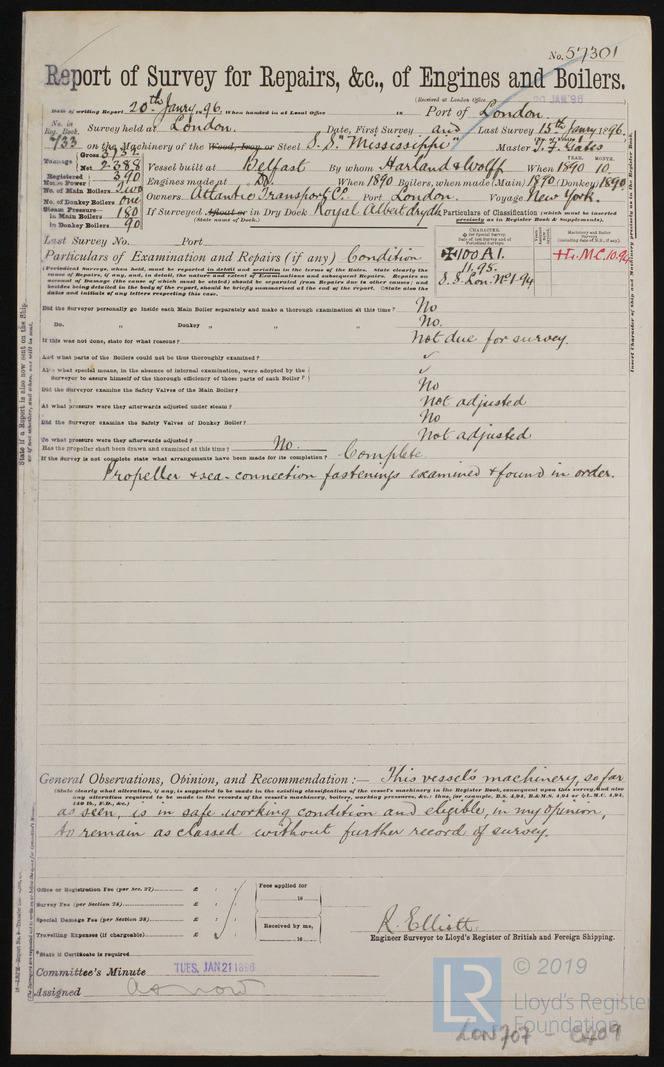 No. 57301
Report of Survey for Repairs, &c., of Engines and Boilers.
(Received at London Office
Date of writing Report 20th Janry 1896. When handed in at Local Office 18 Port of London.
No. in Reg. Book.
733
Survey held at London. Date, First Survey and Last Survey 15th Janry 1896.
on the Machinery of the Wood, Iron or Steel S.S. "Mississippi" Master T. F. Gates
Tonnage Gross 3732
Net 2388
Vessel built at Belfast By whom Harland & Wolff When 1890 YEAR. MONTH. 10.
Registered Horse Power 390
Engines made at Do. When 1890 Boilers, when made (Main) 1890 (Donkey) 1890
No. of Main Boilers Two
No. of Donkey Boilers one
Owners Atlantic Transport Co. Port London. Voyage New York.
Steam Pressure—
in Main Boilers 180
in Donkey Boilers 90
If Surveyed Afloat or in Dry Dock Royal Albert dry dk
(State name of Dock.)
Particulars of Classification (which must be inserted
precisely as in Register Book & Supplements).
Last Survey No. Port
CHARACTER.
✠100A1.
11.95.
S.S. Lon. No1-94
Machinery and Boiler Surveys
L.M.C. 10.94
Particulars of Examination and Repairs (if any) Condition
(Periodical Surveys, when held, must be reported in detail and seriatim in the terms of the Rules. State clearly the
cause of Repairs, if any, and, in detail, the nature and extent of Examinations and subsequent Repairs. Repairs on
account of Damage (the cause of which must be stated) should be separated from Repairs due to other causes; and
besides being detailed in the body of the report, should be briefly summarised at the end of the report. State also the
dates and initials of any letters respecting this case.
Did the Surveyor personally go inside each Main Boiler separately and make a thorough examination at this time? No
Do. " Donkey " " " " No.
If this was not done, state for what reasons? Not due for survey.
And what parts of the Boilers could not be thoroughly examined? ✓
Also what special means, in the absence of internal examination, were adopted by the
Surveyor to assure himself of the thorough efficiency of those parts of each Boiler? ✓
Did the Surveyor examine the Safety Valves of the Main Boiler? No
At what pressure were they afterwards adjusted under steam? Not adjusted
Did the Surveyor examine the Safety Valves of Donkey Boiler? No
To what pressure were they afterwards adjusted? Not adjusted
Has the propeller shaft been drawn and examined at this time? No.
If the Survey is not complete state what arrangements have been made for its completion? Complete
Propeller & sea-connection fastenings examined & found in order.
General Observations, Opinion, and Recommendation:— This vessel's machinery, so far
(State clearly what alteration, if any, is suggested to be made in the existing classification of the vessel's machinery in the Register Book, consequent upon this survey, and also
any alteration required to be made in the records of the vessel's machinery, boilers, working pressures, &c.; thus, for example, B.S. 4,94, B&M.S. 4,94 or L.M.C. 4,94,
140 lb., F.D., &c.)
as seen, is in safe working condition and eligible, in my opinion,
to remain as classed without further record of survey.
Office or Registration Fee (per Sec. 27) £ : :
Survey Fee (per Section 28) £ : :
Special Damage Fee (per Section 28) £ : :
Travelling Expenses (if chargeable) £ : :
Fees applied for
18
Received by me,
18
R. Elliott
Engineer Surveyor to Lloyd's Register of British and Foreign Shipping.
*State if Certificate is required
Committee's Minute TUES. JAN 21 1896
Assigned as now
© 2019
LR
Lloyd's Register
Foundation
LON707 - 0409
State if a Report is also now sent on the Ship,
or if not whether, and when, one will be sent.
Insert Character of Ship and Machinery precisely as in the Register Book.